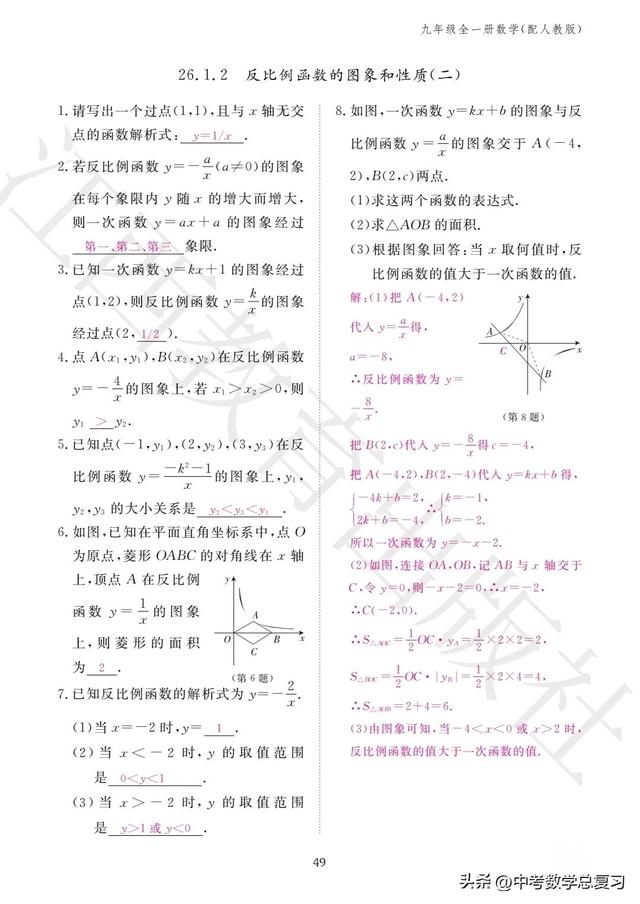 九年级全一册数学(配人教版)
26.1.2 反比例函数的图象和性质(二)
1.请写出一个过点(1,1),且与 x 轴无交
点的函数解析式: y=1/x .
2.若反比例函数 y=-a/x(a≠0)的图象
在每个象限内 y 随 x 的增大而增大,
则一次函数 y=ax+a 的图象经过
第一、第二、第三 象限.
3.已知一次函数 y=kx+1 的图象经过
点(1,2),则反比例函数 y=k/x的图象
经过点(2, 1/2 ).
4.点 A(x₁,y₁),B(x₂,y₂)在反比例函数
y=-4/x的图象上,若 x₁>x₂>0,则
y₁ > y₂.
5.已知点(-1,y₁),(2,y₂),(3,y₃)在反
比例函数 y=(-k²-1)/x的图象上,y₁,
y₂,y₃ 的大小关系是 y₂<y₃<y₁ .
6.如图,已知在平面直角坐标系中,点 O
为原点,菱形 OABC 的对角线在 x 轴
上,顶点 A 在反比例
函数 y=1/x 的图象
上,则菱形的面积
为 2 .
y
A
O
B
x
C
(第 6 题)
7.已知反比例函数的解析式为 y=-2/x.
(1)当 x=-2 时,y= 1 .
(2)当 x<-2 时,y 的取值范围
是 0<y<1 .
(3)当 x>-2 时,y 的取值范围
是 y>1 或 y<0 .
8.如图,一次函数 y=kx+b 的图象与反
比例函数 y=a/x 的图象交于 A(-4,
2),B(2,c)两点.
(1)求这两个函数的表达式.
(2)求△AOB 的面积.
(3)根据图象回答:当 x 取何值时,反
比例函数的值大于一次函数的值.
解:(1)把 A(-4,2)
代入 y=a/x得,
a=-8,
∴反比例函数为 y=
-8/x.
y
A
C
O
x
B
(第 8 题)
把 B(2,c)代入 y=-8/x得 c=-4,
把 A(-4,2),B(2,-4)代入 y=kx+b 得,
{-4k+b=2, ∴{k=-1,
{2k+b=-4, {b=-2.
所以一次函数为 y=-x-2.
(2)如图,连接 OA,OB,记 AB 与 x 轴交于
C,令 y=0,则-x-2=0,∴x=-2,
∴C(-2,0).
∴S△AOC=1/2 OC·yA=1/2×2×2=2,
S△BOC=1/2 OC·|yB|=1/2×2×4=4,
∴S△AOB=2+4=6.
(3)由图象可知,当-4<x<0 或 x>2 时,
反比例函数的值大于一次函数的值.
49
江西教育出版社
头条 @中考数学总复习